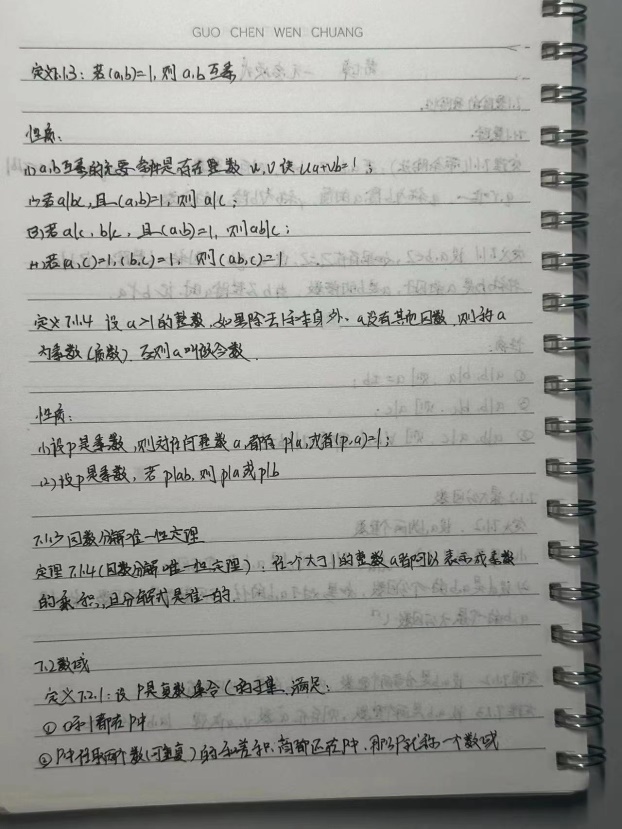 GUO CHEN WEN CHUANG
定义7.1.3：若(a,b)=1，则 a,b 互素
性质：
(1) a,b互素的充要条件是存在整数 u,v 使 ua+vb=1；
(2) 若a|bc，且(a,b)=1，则 a|c；
(3) 若a|c，b|c，且(a,b)=1，则ab|c；
(4) 若(a,c)=1，(b,c)=1，则(ab,c)=1
定义7.1.4 设 a>1的整数，如果除去1和本身外，a没有其他因数，则称a
为素数(质数)．否则a叫做合数．
性质：
(1) 设p是素数，则对任何整数a，都有 p|a，或有(p,a)=1；
(2) 设p是素数，若 p|ab，则 p|a或p|b
7.1.3 因数分解唯一性定理
定理7.1.4(因数分解唯一性定理)：任一个大于1的整数a都可以表示成素数
的乘积，且分解式是唯一的．
7.2 数域
定义7.2.1：设 P是复数集合C的子集，满足：
① 0和1都在P中
② P中任取两个数(可重复)的和差积商都还在P中，那么P就称一个数域